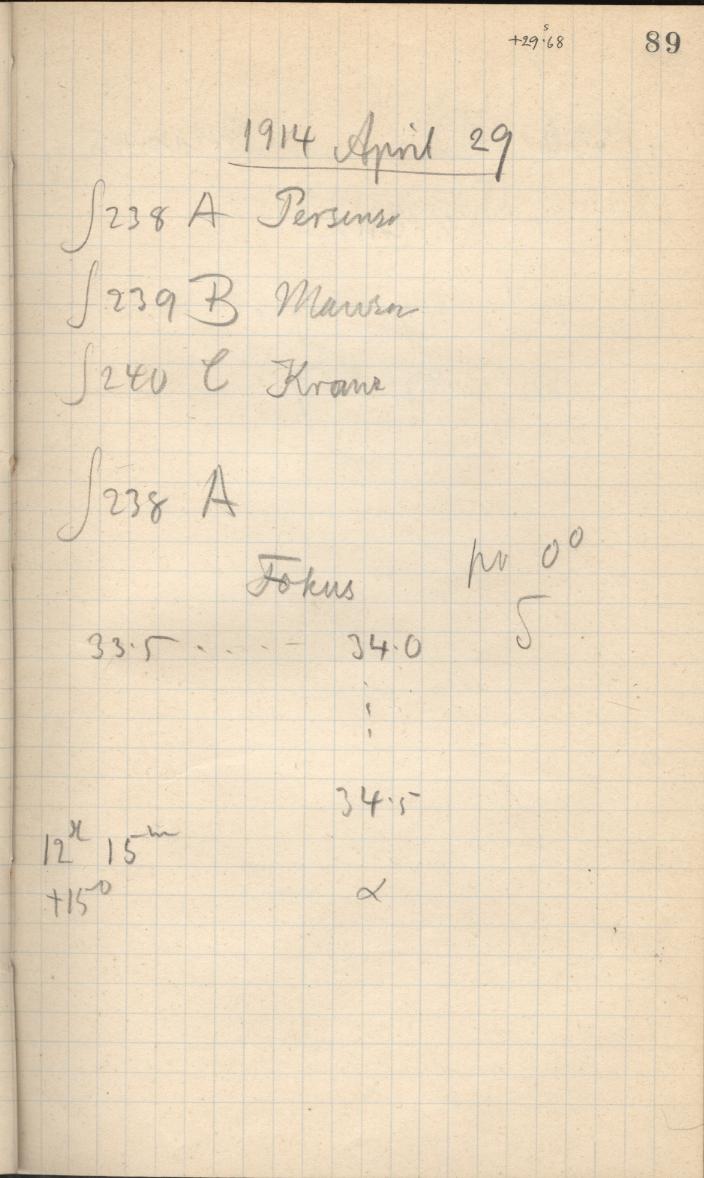 +29ˢ.68 89
1914 April 29
∫238 A Perseus
∫239 B
∫240 C Krantz
∫238 A
Fokus pv 0°
33.5 ..... 34.0 δ
34.5
12ʰ 15ᵐ
+15° α